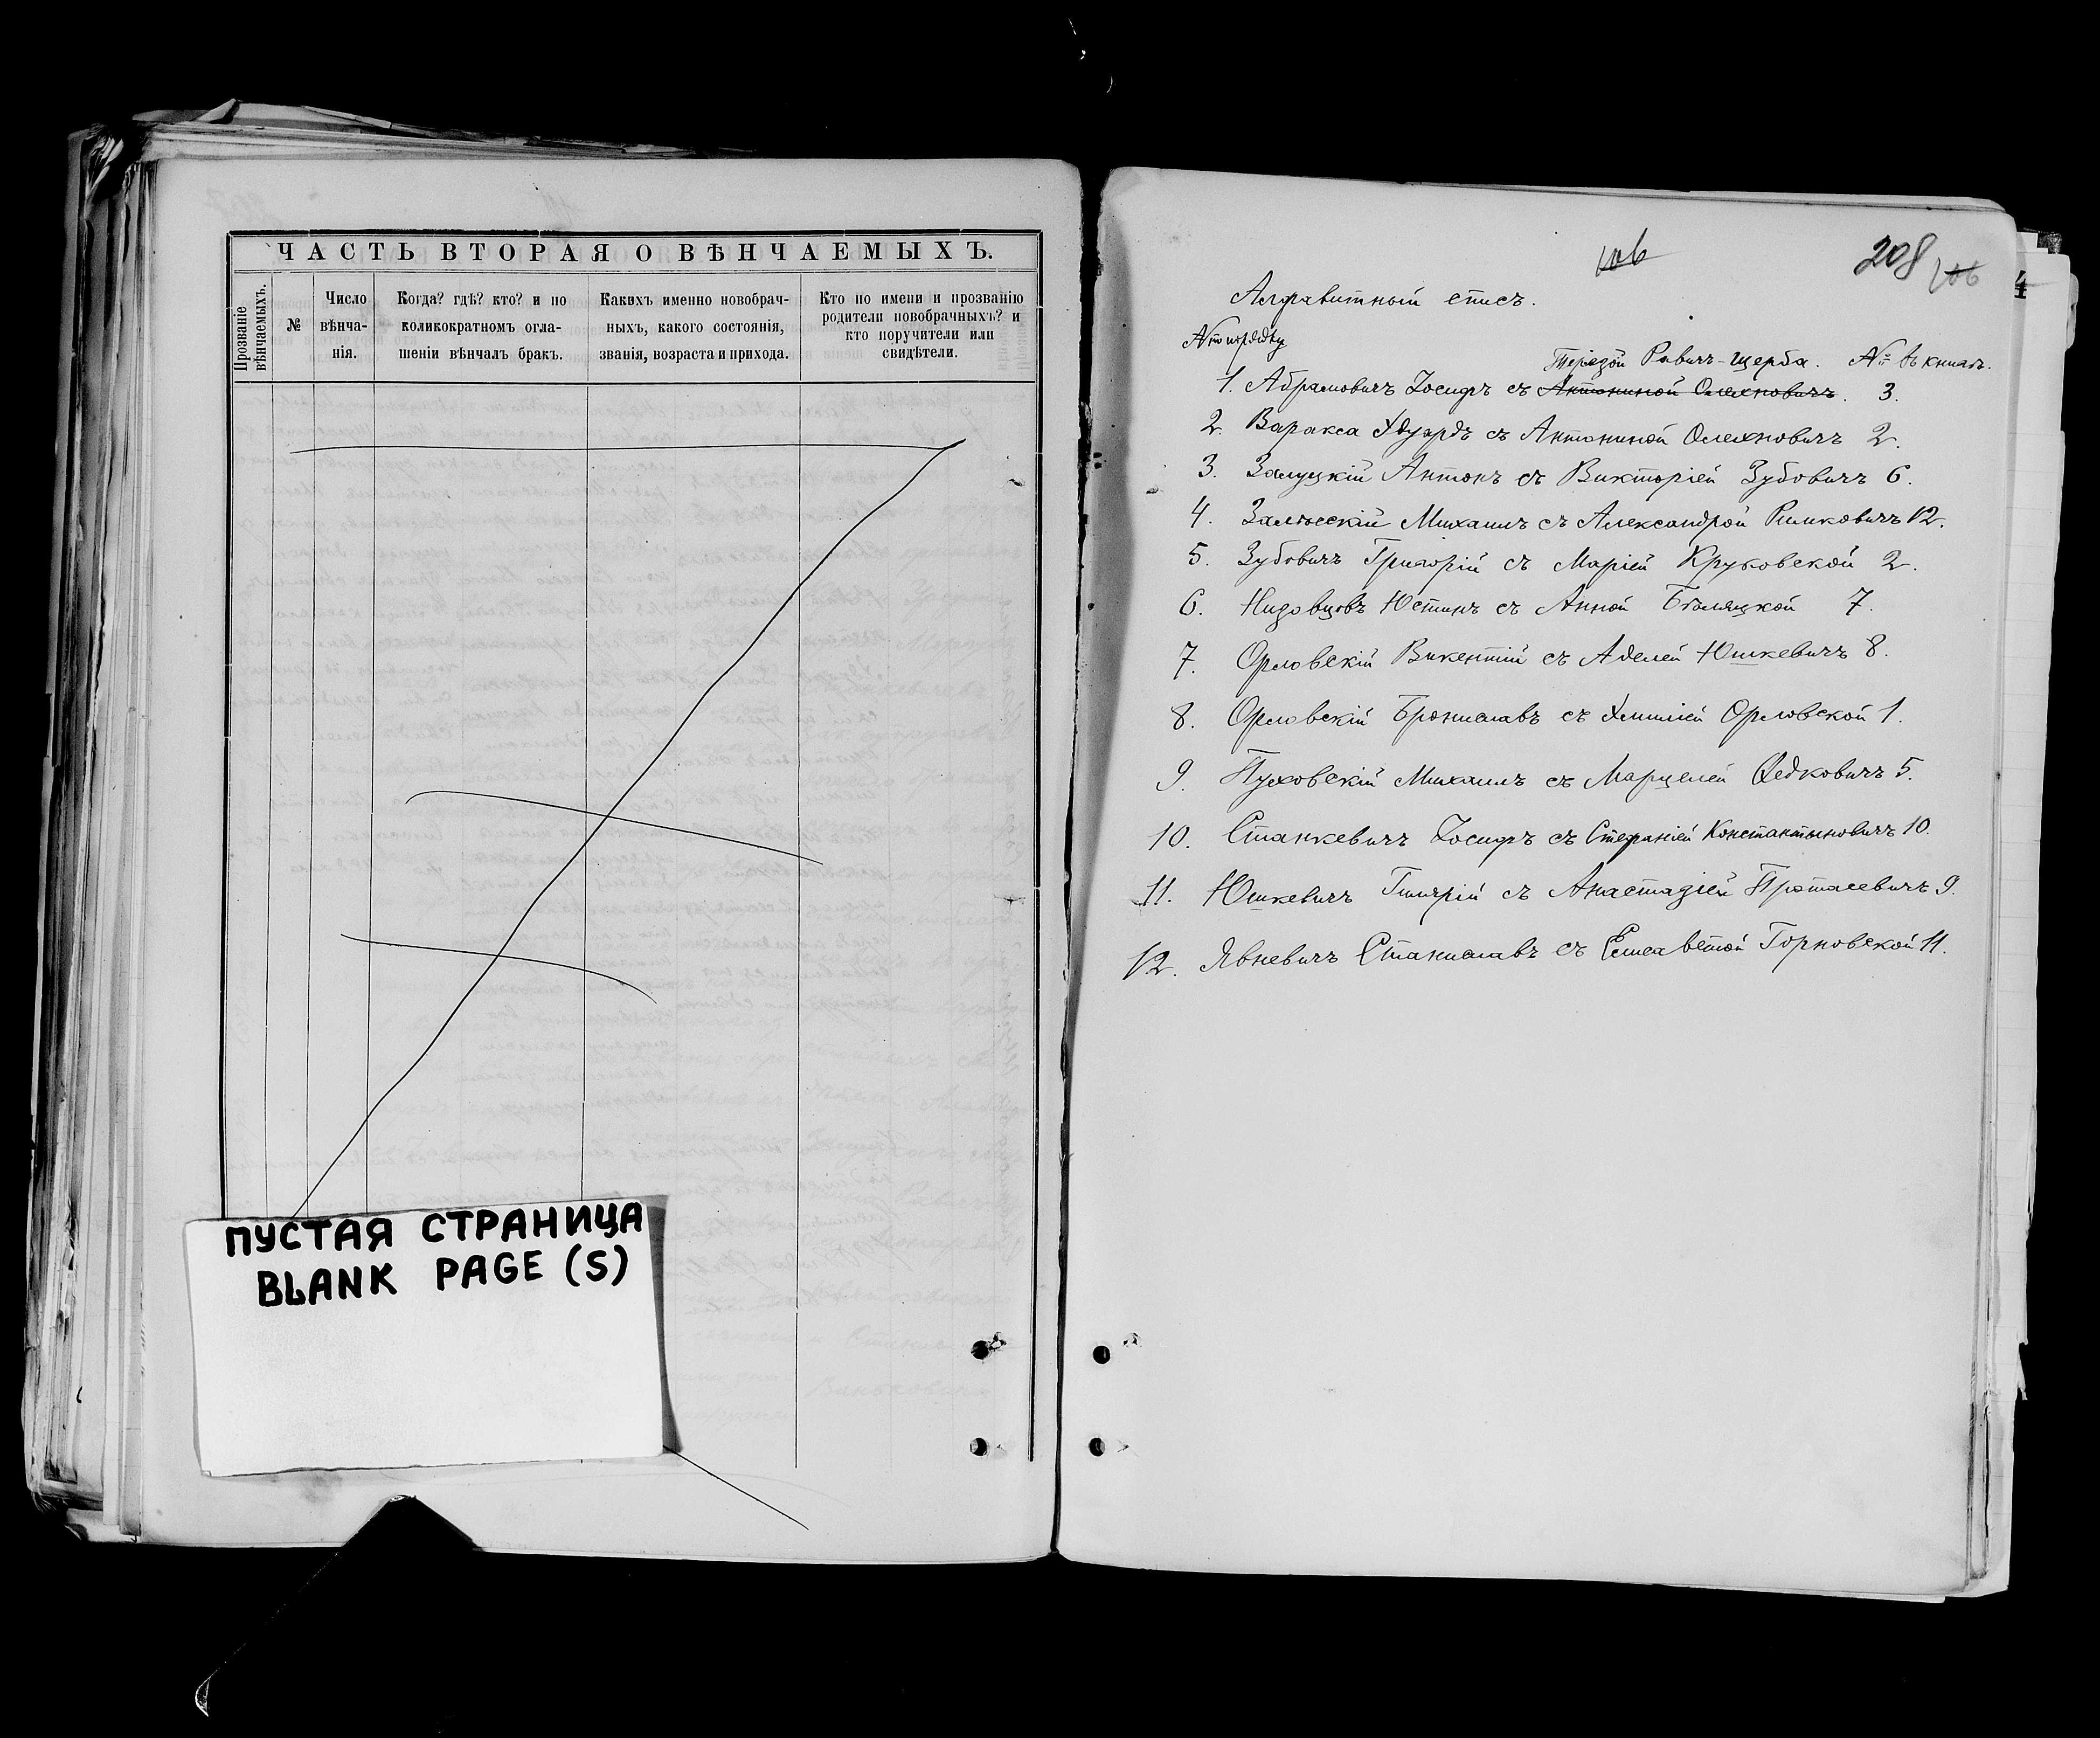 ЧАСТЬ ВТОРАЯ О ВѢНЧАЕМЫХЪ.
Прозваніе
вѣнчаемыхъ.
№
Число
вѣнча-
нія.
Когда? гдѣ? кто? и по
коликократномъ огла-
шеніи вѣнчалъ бракъ.
Какихъ именно новобрач-
ныхъ, какого состоянія,
званія, возраста и прихода.
Кто по имени и прозванію
родители новобрачныхъ? и
кто поручители или
свидѣтели.
ПУСТАЯ СТРАНИЦА
BLANK PAGE (S)
106
208 106
Алфавитный спис.
№ по порядку
Терезой Равичъ-Щерба. № въ книгѣ.
1. Абрамовичъ Іосифъ съ Антониной Олехновичъ. 3.
2. Варакса Эдуардъ съ Антониной Олехновичъ 2.
3. Залуцкій Антонъ съ Викторіей Зубовичъ 6.
4. Залѣсскій Михаилъ съ Александрой Римковичъ 12.
5. Зубовичъ Григорій съ Маріей Круковской 2.
6. Юстинъ съ Анной Бѣляцкой 7.
7. Орловскій Викентій съ Аделей Юшкевичъ 8.
8. Орловскій Брониславъ съ Эмиліей Орловской 1.
9. Пуховскій Михаилъ съ Марцелей Федковичъ 5.
10. Станкевичъ Іосифъ съ Стефаніей Константыновичъ 10.
11. Юшкевичъ съ Анастазіей Протасевичъ 9.
12. Явневичъ Станиславъ съ Елисаветой Горновской 11.